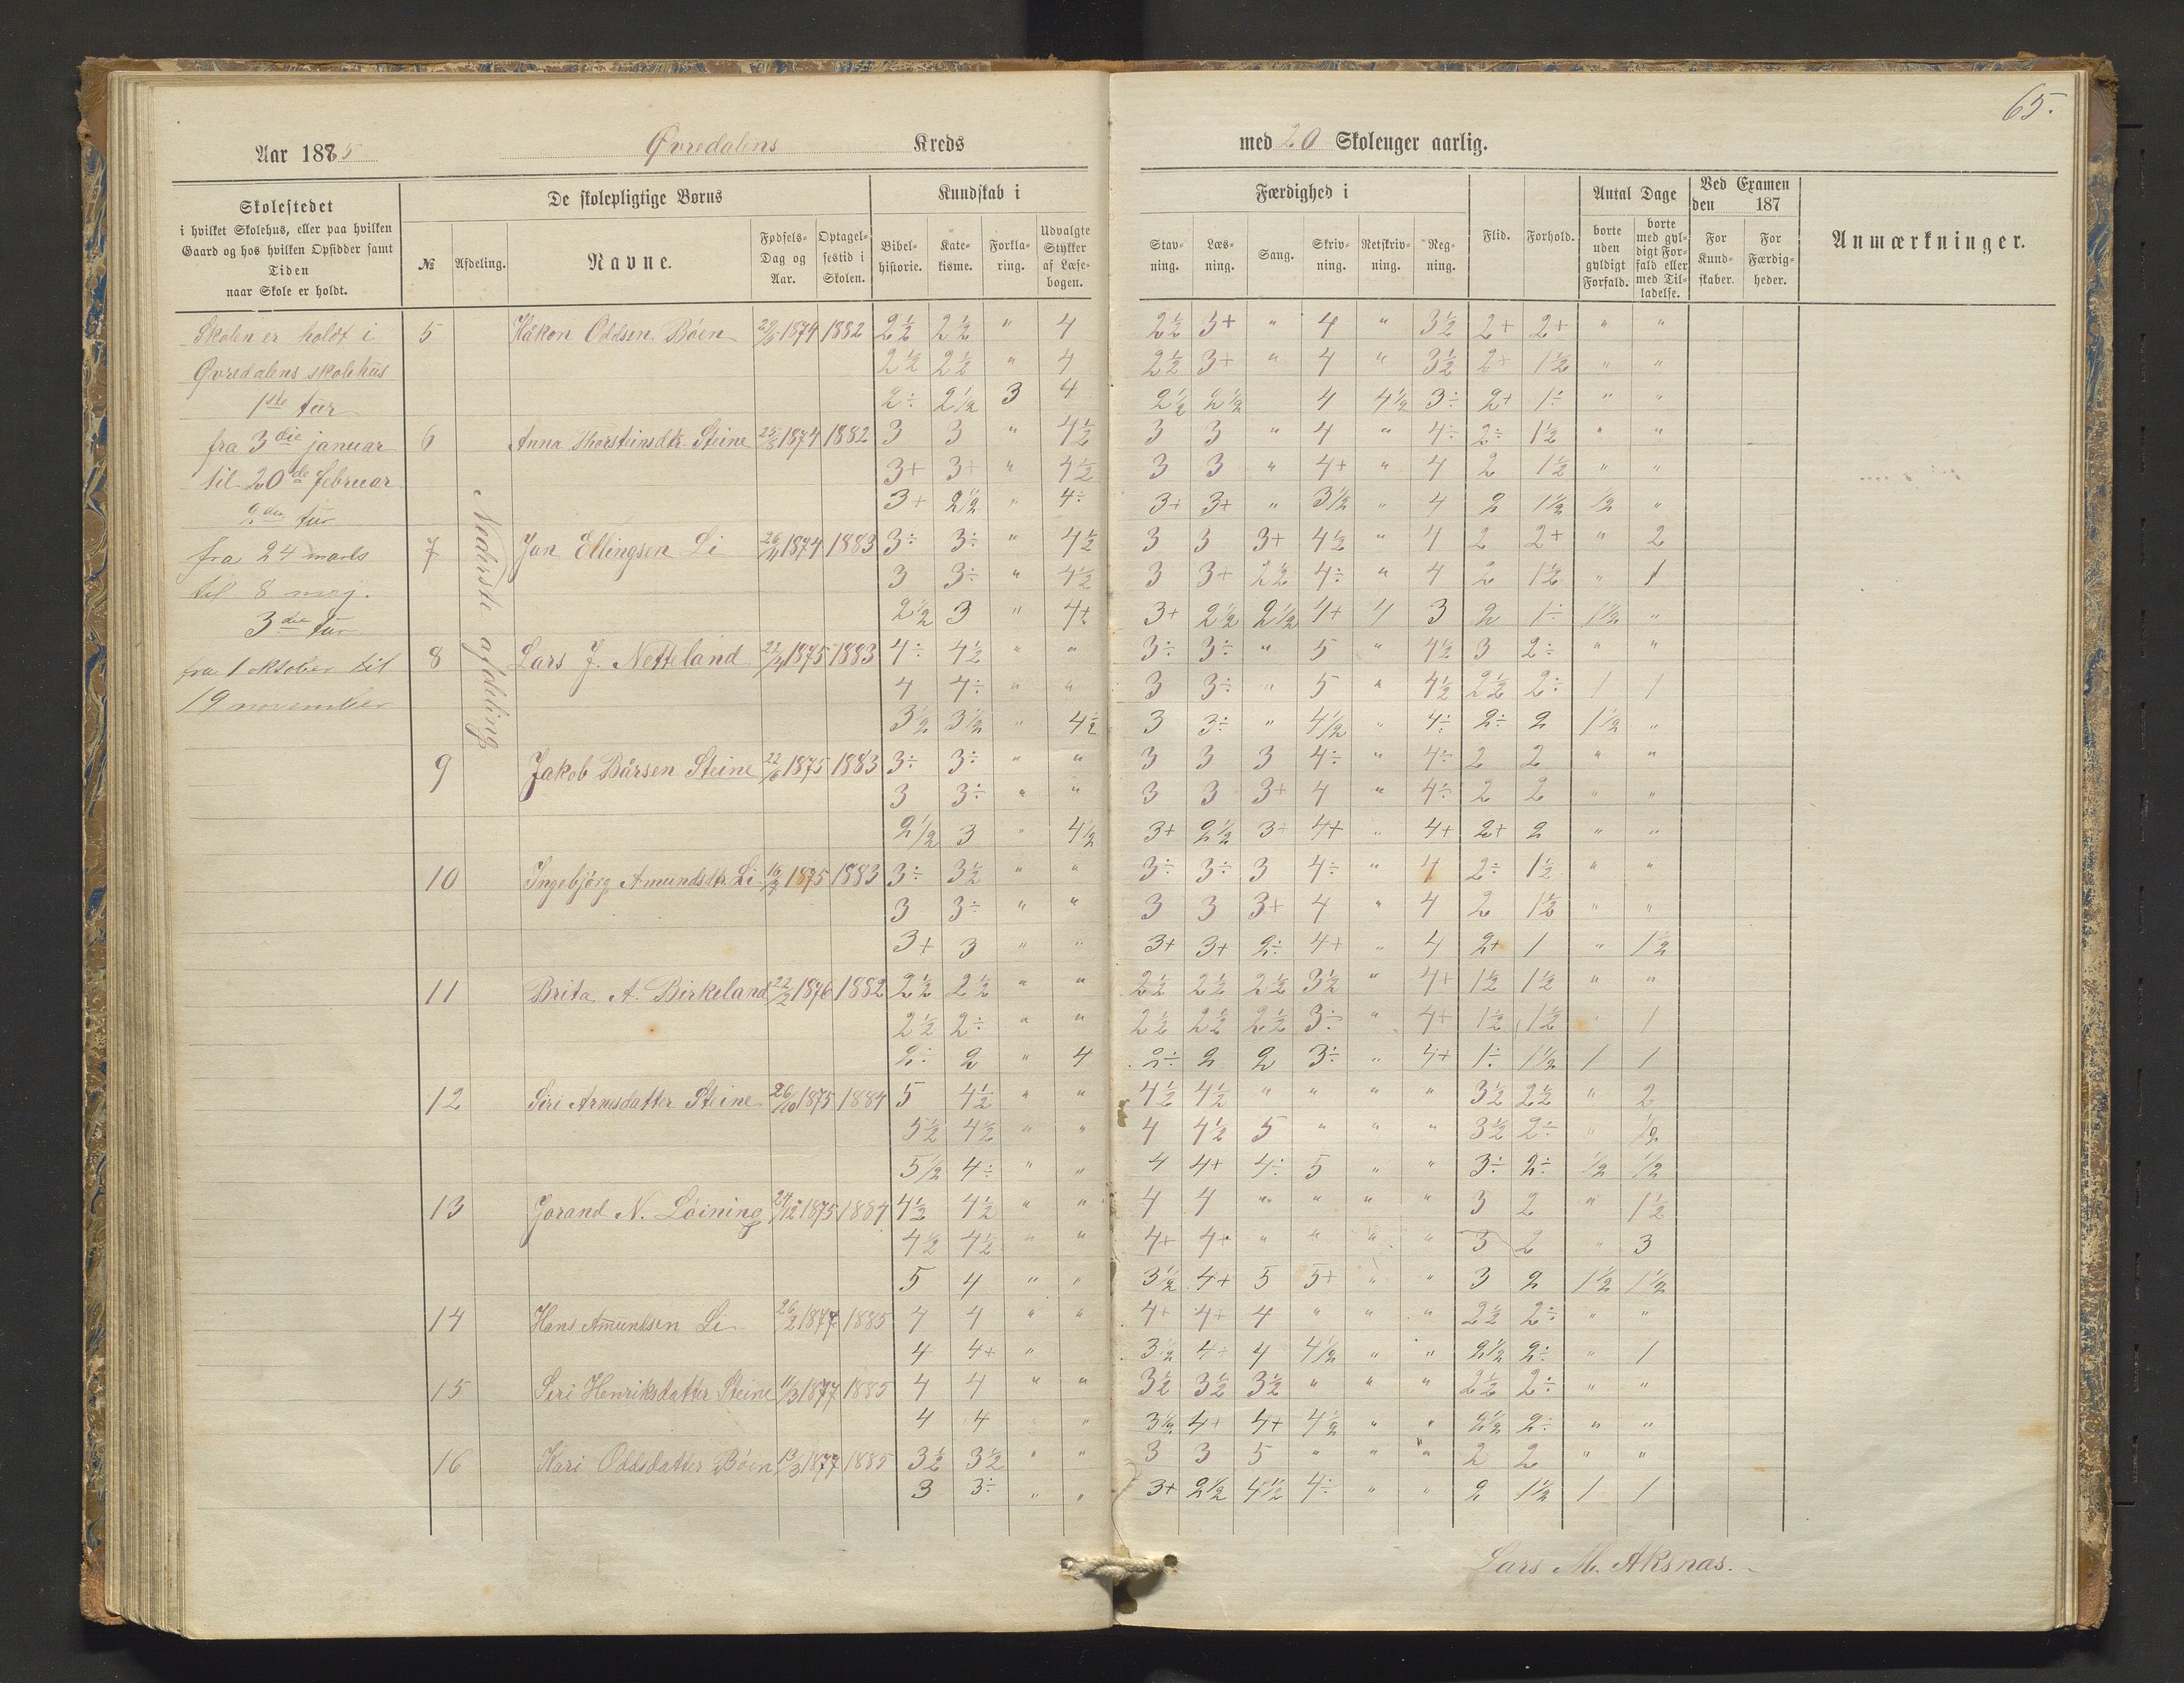 65.
Aar 1885 Øvredalens Kreds med 20 Skoleuger aarlig.
Skolestedet i hvilket Skolehus, eller paa hvilken Gaard og hos hvilken Opsidder samt Tiden naar Skole er holdt.
De skolepligtige Børns
№ Afdeling. Navne. Fødsels-Dag og Aar. Optagelsestid i Skolen.
Kundskab i
Bibelhistorie. Katekisme. Forklaring. Udvalgte Stykker af Læsebogen.
Færdighed i
Stavning. Læsning. Sang. Skrivning. Retskrivning. Regning.
Flid. Forhold.
Antal Dage
borte uden gyldigt Forfald. borte med gyldigt Forfald eller med Tilladelse.
Ved Examen den 187
For Kundskaber. For Færdigheder.
Anmærkninger.
Skolen er holdt i
Øvredalens skolehus
1ste tur
fra 3die januar
til 20de februar
2den tur
fra 24 marts
til 8 maj.
3die tur
fra 1 oktober til
19 november
Nederste afdeling
5 Håkon Oddsen Böen 1874 1882 2½ 2½ " 4 2½ 3+ " 4 " 3½ 2+ 2+ " "
2½ 2½ " 4 2½ 3+ " 4 " 3½ 2+ 1½ " "
2÷ 2½ 3 4 2½ 2½ 4 4½ 3÷ 2+ 1÷ " "
6 Anna Thorsteinsdtr. Steine 1874 1882 3 3 " 4½ 3 3 " 4 " 4÷ 2÷ 1½ " "
3+ 3+ " 4½ 3 3 " 4+ " 4 2 1½ " "
3+ 2½ " 4÷ 3+ 3+ " 3½ " 4 2 1½ ½ "
7 Jan Ellingsen Li 1874 1883 3÷ 3÷ " 4½ 3 3 3+ 4½ " 4 2 2+ " 2
3 3÷ " 4½ 3 3+ 2½ 4÷ " 4 2 1½ " 1
2½ 3 " 4+ 3+ 2½ 2½ 4+ 4 3 2 1÷ 1½ "
8 Lars J. Netteland 22/4 1875 1883 4÷ 4½ " " 3÷ 3÷ " 5 " 4½ 3 2÷ " "
4 4÷ " " 3 3÷ " 5 " 4½ 2½ 2÷ 1 1
3½ 3½ " 4½ 3 3÷ " 4½ " 4÷ 2÷ 2 1½ "
9 Jakob Bårsen Steine 22/6 1875 1883 3÷ 3÷ " " 3 3 3 4÷ " 4÷ 2 2 " "
3 3÷ " " 3 3 3+ 4 " 4÷ 2 2 " "
2½ 3 " 4½ 3+ 2½ 3+ 4+ " 4+ 2+ 2 " "
10 Ingebjörg Amundsdtr. Li 1875 1883 3÷ 3½ " " 3÷ 3÷ 3 4÷ " 4 2÷ 1½ " "
3 3÷ " " 3 3 3+ 4 " 4 2 1½ " "
3+ 3 " " 3+ 3+ 2÷ 4+ " 4 2+ 1 " 1½
11 Brita A. Birkeland 22/2 1876 1882 2½ 2½ " " 2½ 2½ 2½ 3½ " 4+ 1½ 1½ " "
2½ 2÷ " " 2½ 2½ 2½ 3÷ " 4+ 1½ 1½ " 1
2÷ 2 " 4 2÷ 2 2 3÷ " 4+ 1÷ 1½ 1 1
12 Siri Arnesdatter Steine 26/10 1875 1884 5 4½ " " 4½ 4½ " " " " 3½ 2½ " 2
5½ 4½ " " 4 4½ 5 " " " 3½ 2÷ " ½
5½ 4÷ " " 4 4+ 4÷ 5 " " 3÷ 2÷ ½ ½
13 Jorand N. Löining 24/12 1875 1884 4½ 4½ " " 4 4 " " " " 3 2 " 1½
4½ 4½ " " 4+ 4+ " " " " 3 2 " 3
5 4 " " 3½ 4+ 5 5+ " " 3 2 1½ 1½
14 Hans Amundsen Li 26/2 1877 1885 4 4 " " 4+ 4+ 4 " " " 2½ 2÷ " "
4 4+ " 3½ 4+ 4 4½ " " 2½ 2÷ " 1
15 Siri Henriksdatter Steine 11/3 1877 1885 4 4 " " 3½ 3½ 3½ " " " 2½ 2÷ " "
4 4 " " 3½ 4+ 4+ 4½ " " 2½ 2÷ " "
16 Kari Oddsdatter Böen 13/3 1877 1885 3½ 3½ " " 3 3 5 " " " 2 2 " "
3 3÷ " " 3+ 2½ 4½ 4÷ " " 2 1½ 1 1
Lars M. Aksnæs.